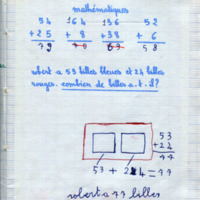 mathématiques
54 164 136 52
+25 + 8 +38 + 6
79 58
robert a 53 billes bleues et 24 billes
rouges. combien de billes a.t.il?
53
+24
77
53 + 24 = 77
robert a 77 billes